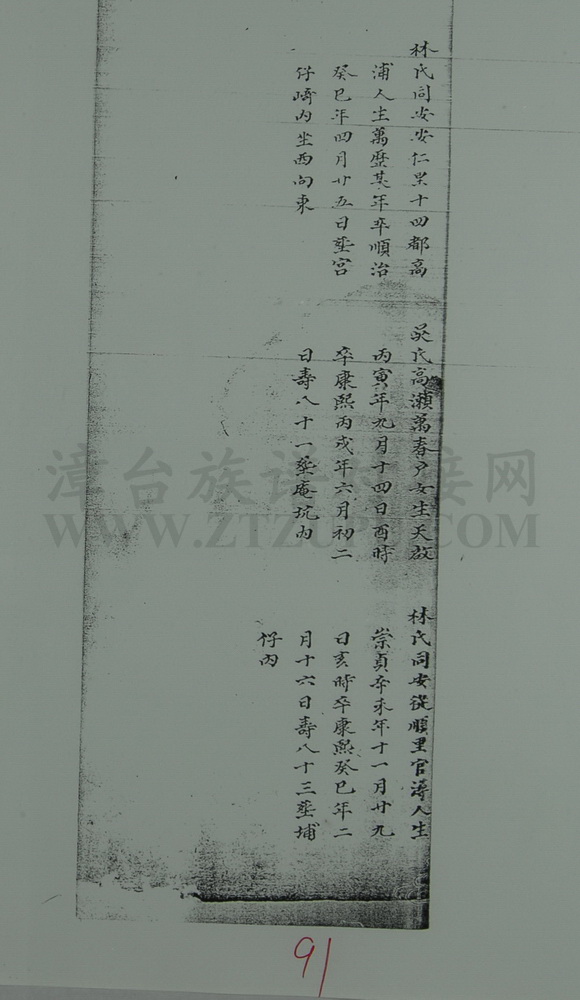 林氏同安安仁里十四都高
浦人生萬歷某年卒順治
癸巳年四月廿五日塟宮
仔崎内坐西向東
吴氏高瀬萬春户女生天啟
丙寅年九月十四日酉時
卒康熙丙戌年六月初二
日壽八十一塟庵坑内
林氏同安從順里官潯人生
崇貞辛未年十一月廿九
日亥時卒康熙癸巳年二
月十六日壽八十三塟埔
仔内
漳台族谱对接网
WWW.ZTZUPU.COM
91